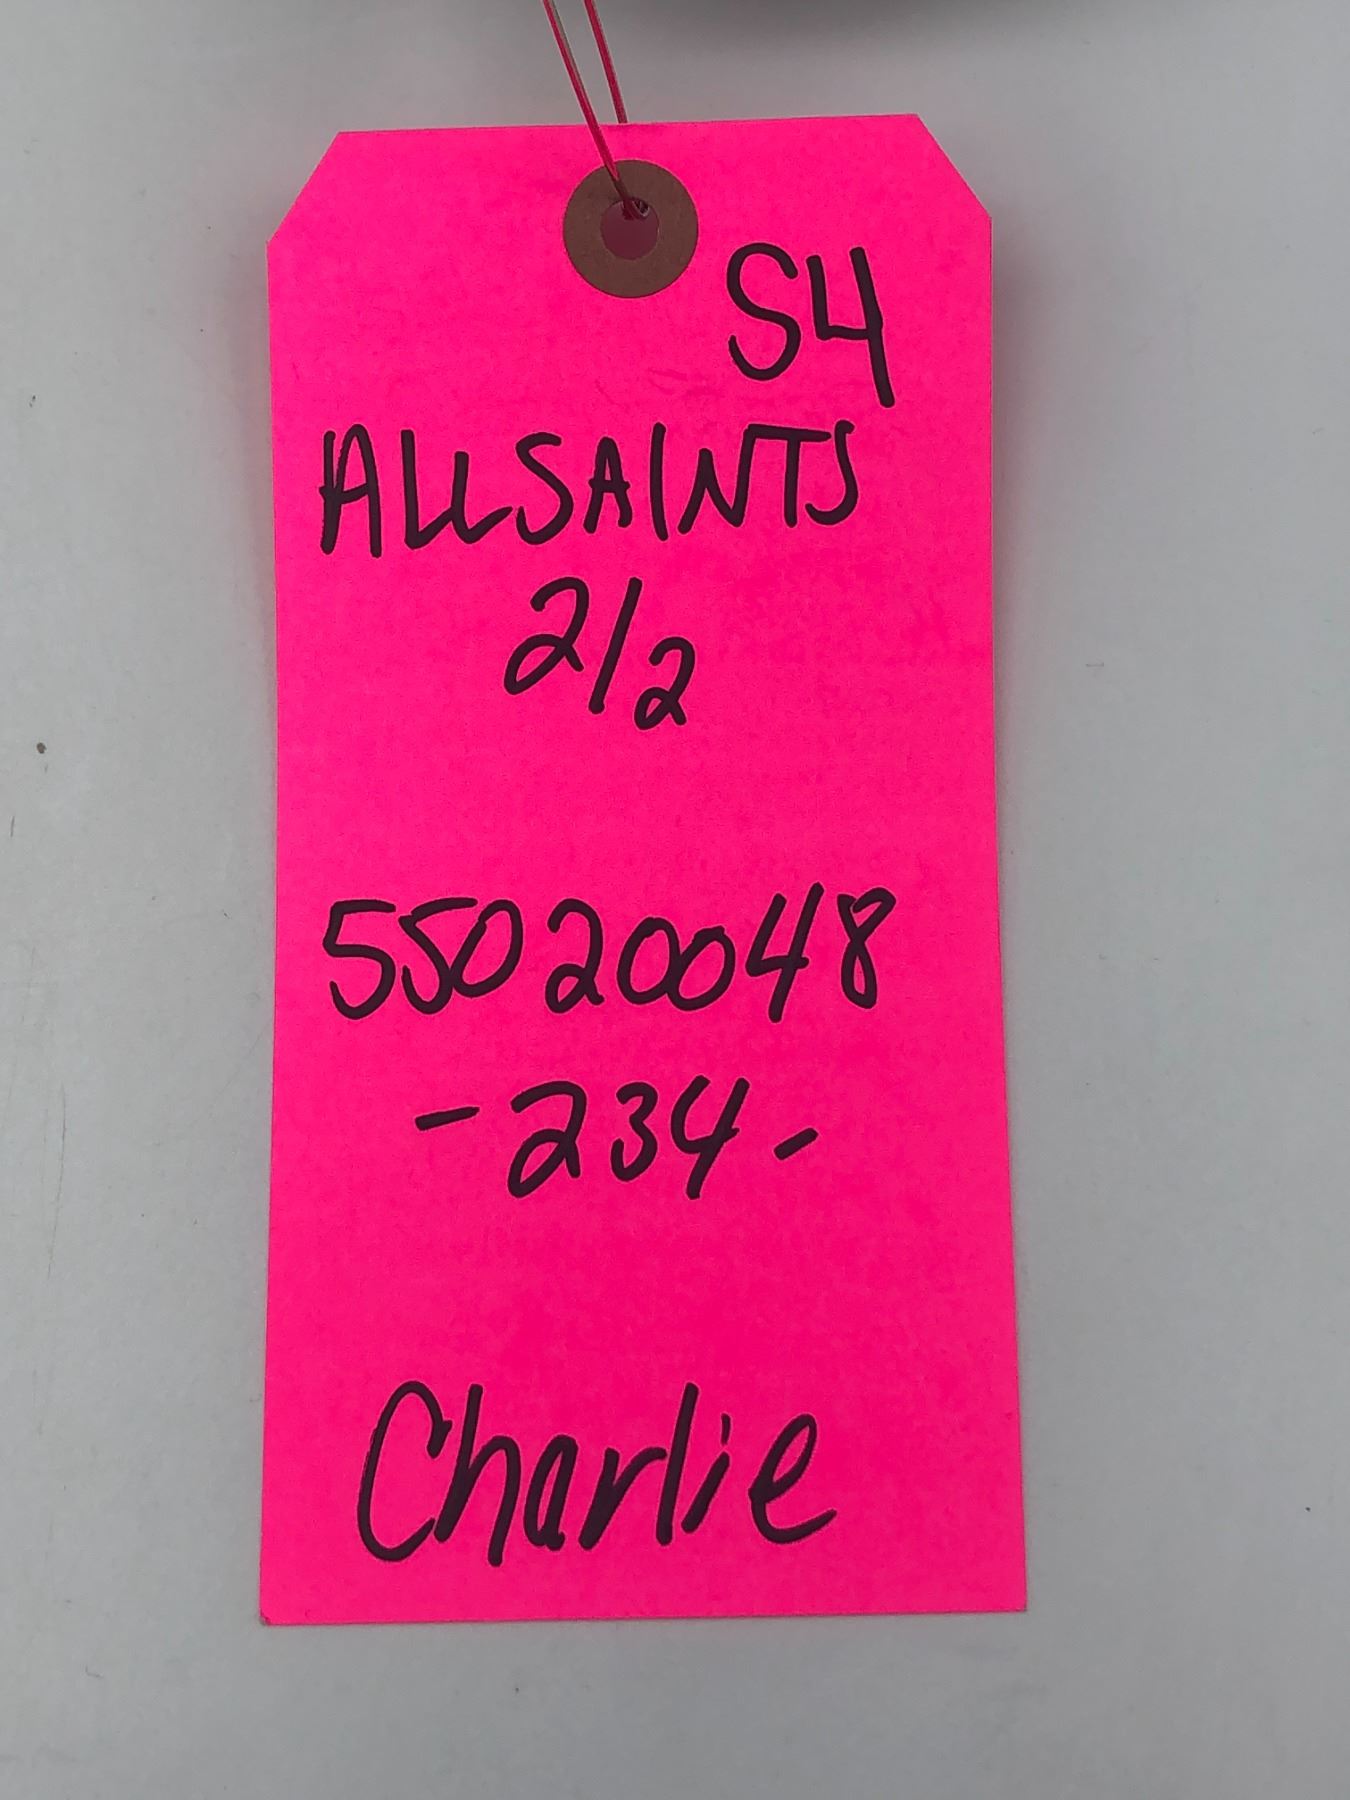 S4
ALLSAINTS
2/2
55020048
-234-
Charlie